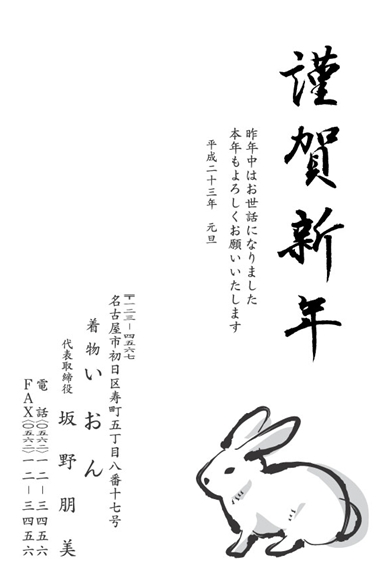 謹賀新年
昨年中はお世話になりました
本年もよろしくお願いいたします
平成二十三年　元旦
〒一二三－四五六七
名古屋市初日区寿町五丁目八番十七号
着物いおん
代表取締役　坂野朋美
電話(〇五六二)一二－三四五六
FAX(〇五六二)一二－三四五六